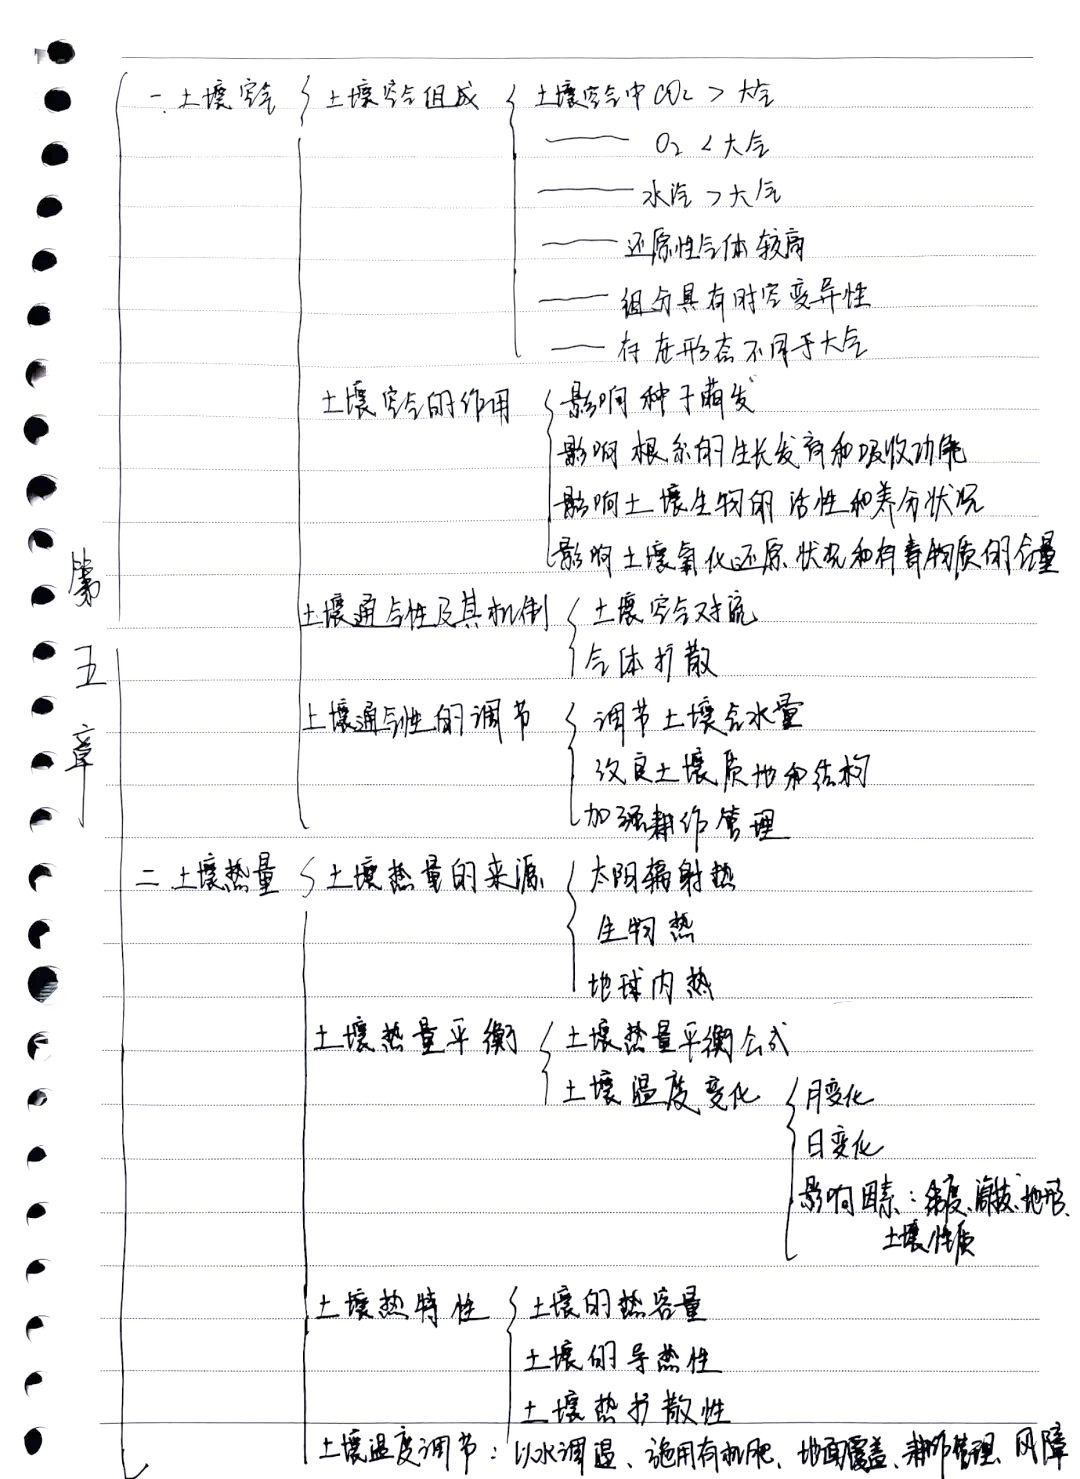 第五章
一、土壤空气 土壤空气组成 土壤空气中CO2 > 大气
—— O2 < 大气
—— 水汽 > 大气
—— 还原性气体较高
—— 组分具有时空变异性
—— 存在形态不同于大气
土壤空气的作用 影响种子萌发
影响根系的生长发育和吸收功能
影响土壤生物的活性和养分状况
影响土壤氧化还原状况和有毒物质的含量
土壤通气性及其机制 土壤空气对流
气体扩散
土壤通气性的调节 调节土壤含水量
改良土壤质地和结构
加强耕作管理
二、土壤热量 土壤热量的来源 太阳辐射热
生物热
地球内热
土壤热量平衡 土壤热量平衡公式
土壤温度变化 月变化
日变化
影响因素：纬度、海拔、地形、
土壤性质
土壤热特性 土壤的热容量
土壤的导热性
土壤热扩散性
土壤温度调节：以水调温、施用有机肥、地面覆盖、耕作管理、风障